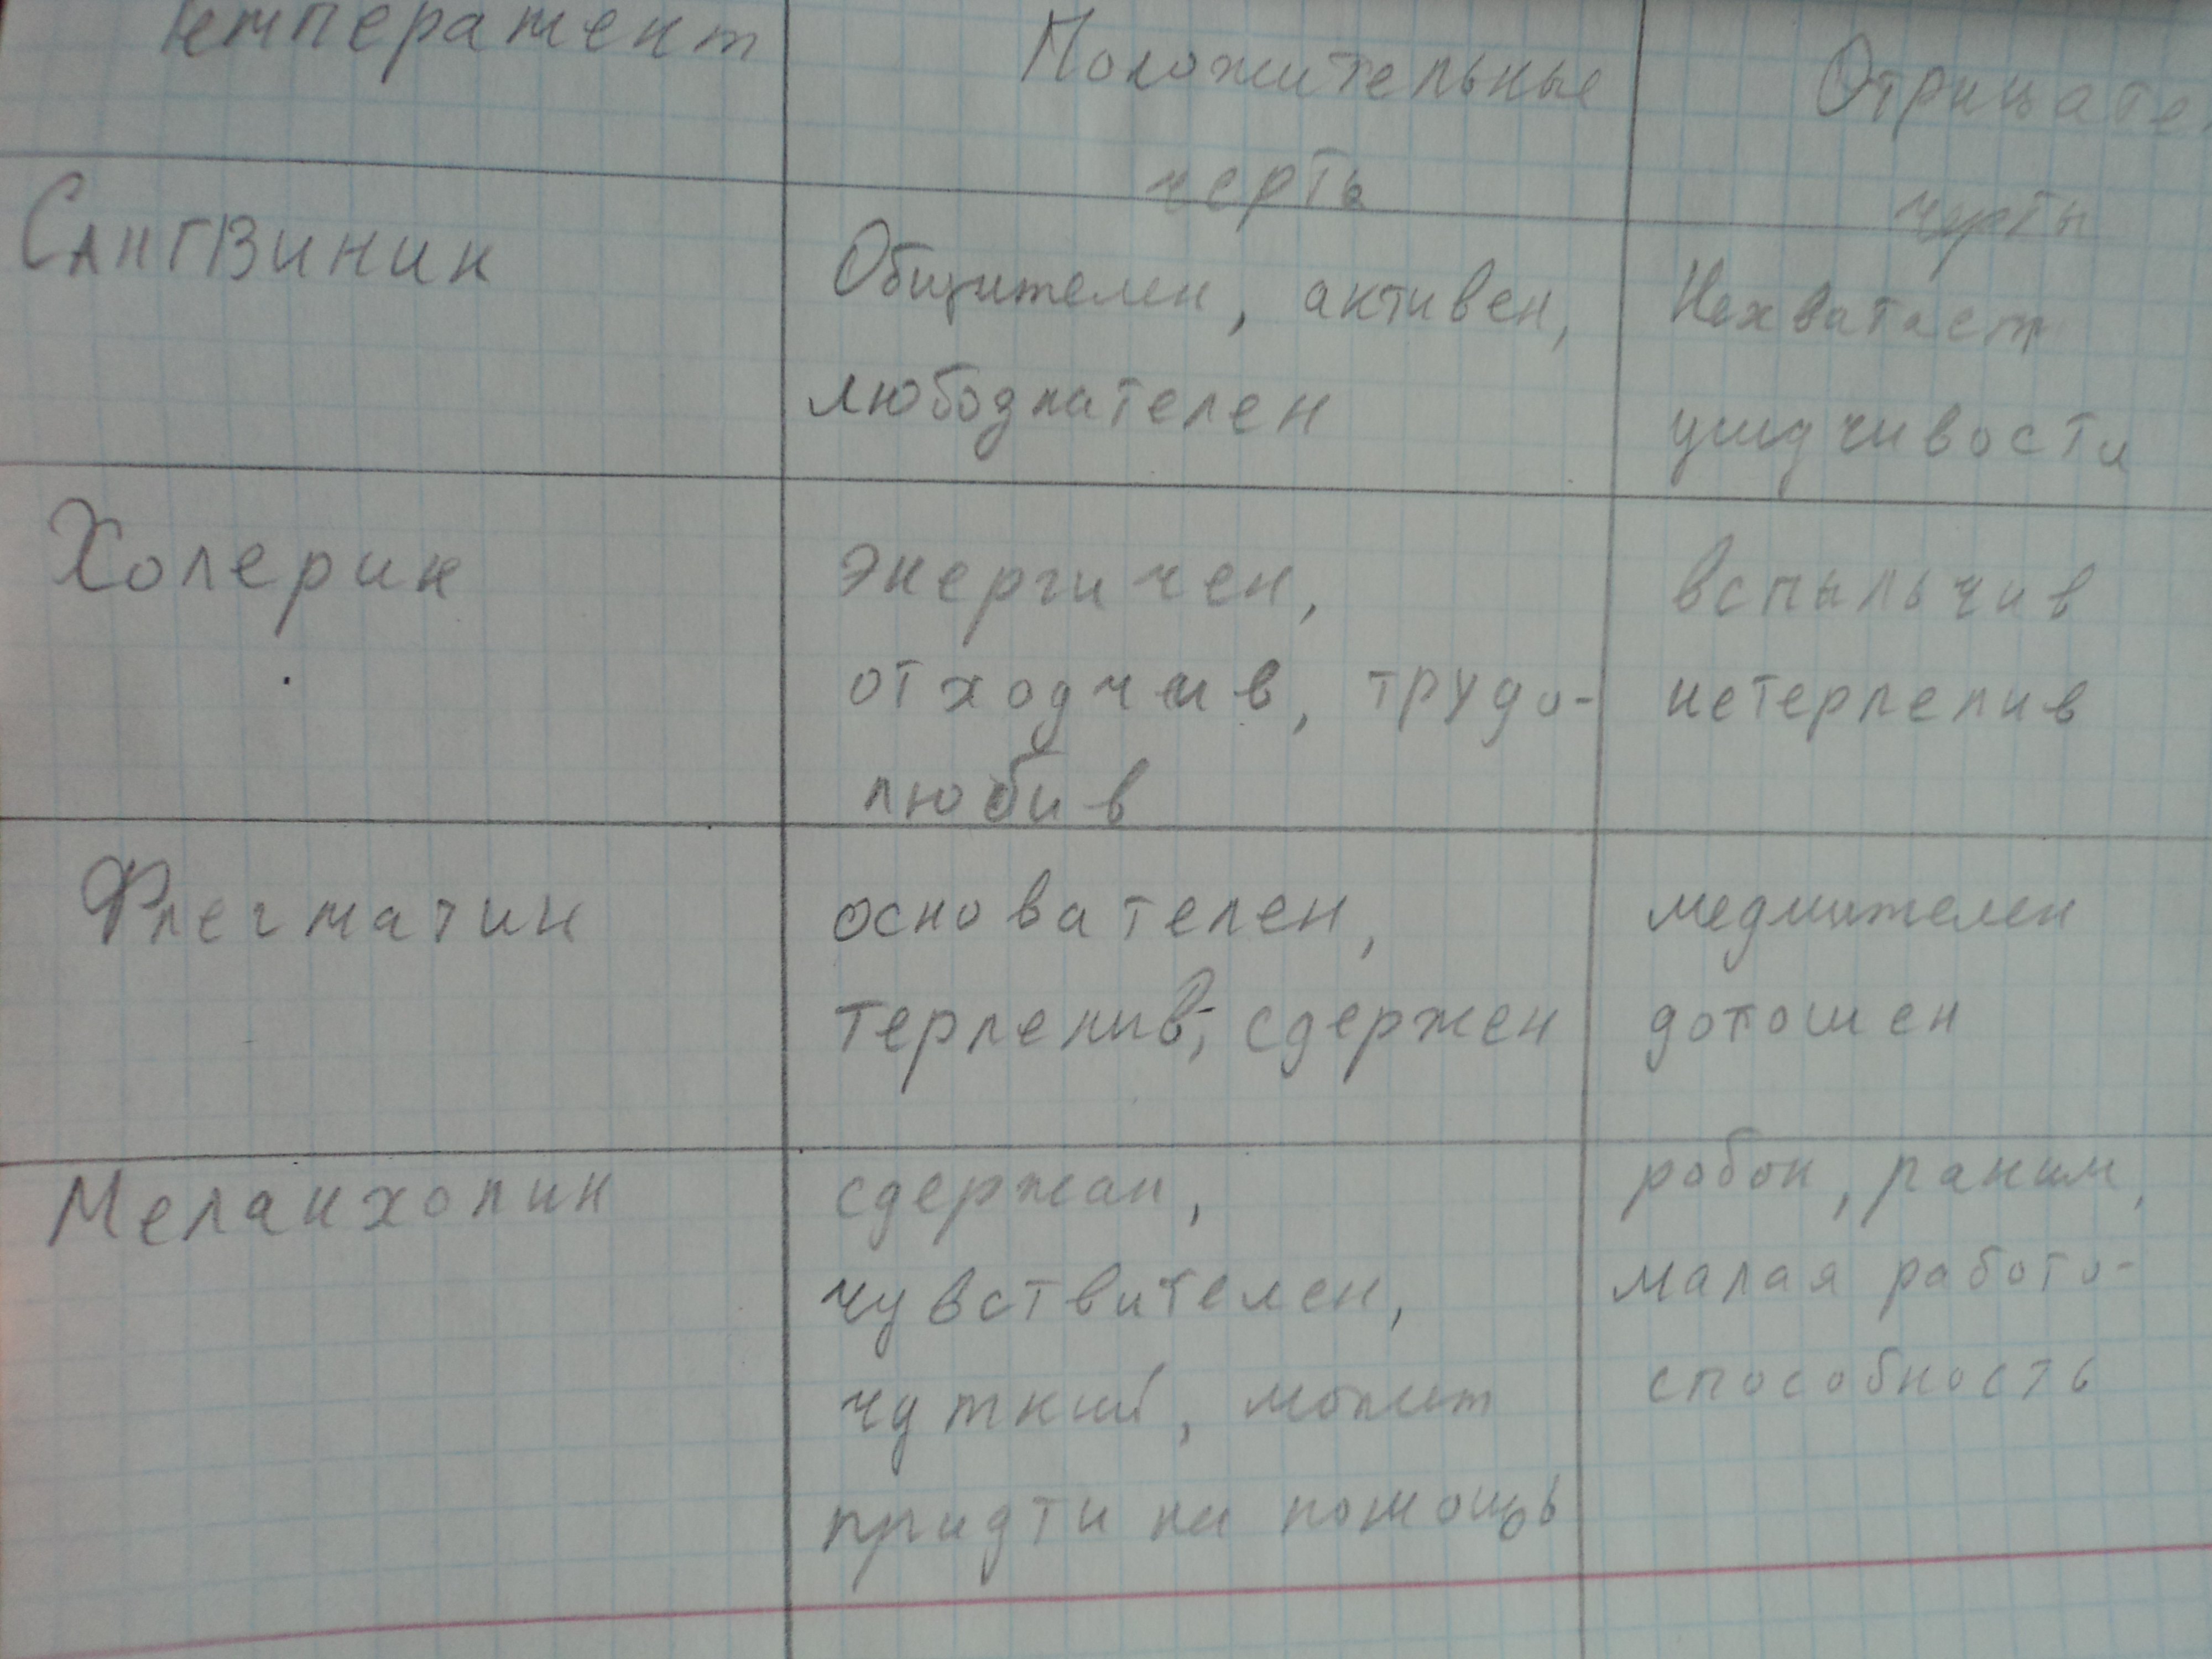 Темперамент
Положительные
черты
Отрицате
черты
Сангвиник
Общителен, активен,
любознателен
Нехватает
усидчивости
Холерик
энергичен,
отходчив, трудо-
любив
вспыльчив
нетерпелив
Флегматик
основателен,
терпелив, сдержен
медлителен
дотошен
Меланхолик
сдержан,
чувствителен,
чуткий, может
придти на помощь
робок, раним,
малая работо-
способность